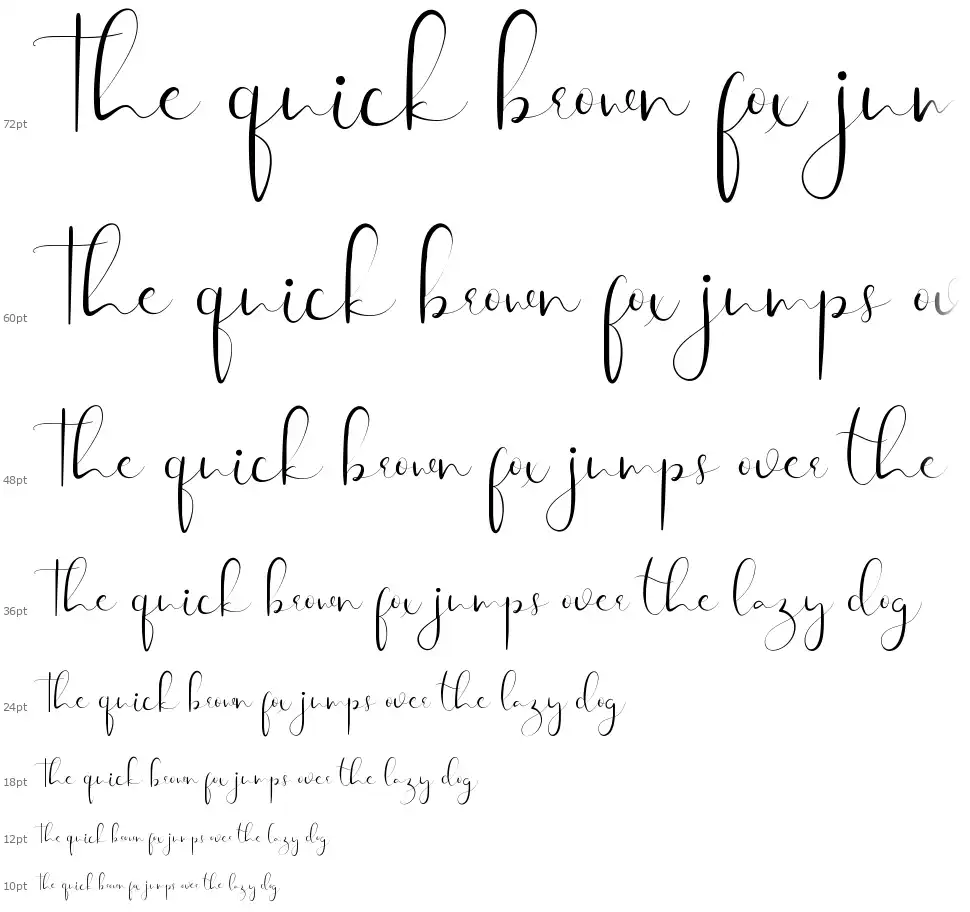 72pt The quick brown fox jun
60pt The quick brown fox jumps ov
48pt The quick brown fox jumps over the
36pt The quick brown fox jumps over the lazy dog
24pt The quick brown fox jumps over the lazy dog
18pt The quick brown fox jumps over the lazy dog
12pt The quick brown fox jumps over the lazy dog
10pt The quick brown fox jumps over the lazy dog